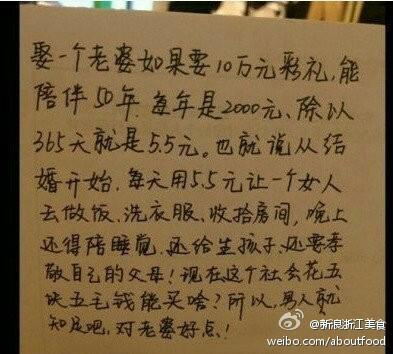 娶一个老婆如果要10万元彩礼,能
陪伴50年.每年是2000元、除以
365天就是5.5元。也就说从结
婚开始.每天用5.5元让一个女人
去做饭、洗衣服、收拾房间,晚上
还得陪睡觉.还给生孩子.还要孝
敬自己的父母!现在这个社会花五
块五毛钱能买啥?所以.男人就
知足吧,对老婆好点!
@新浪浙江美食
weibo.com/aboutfood